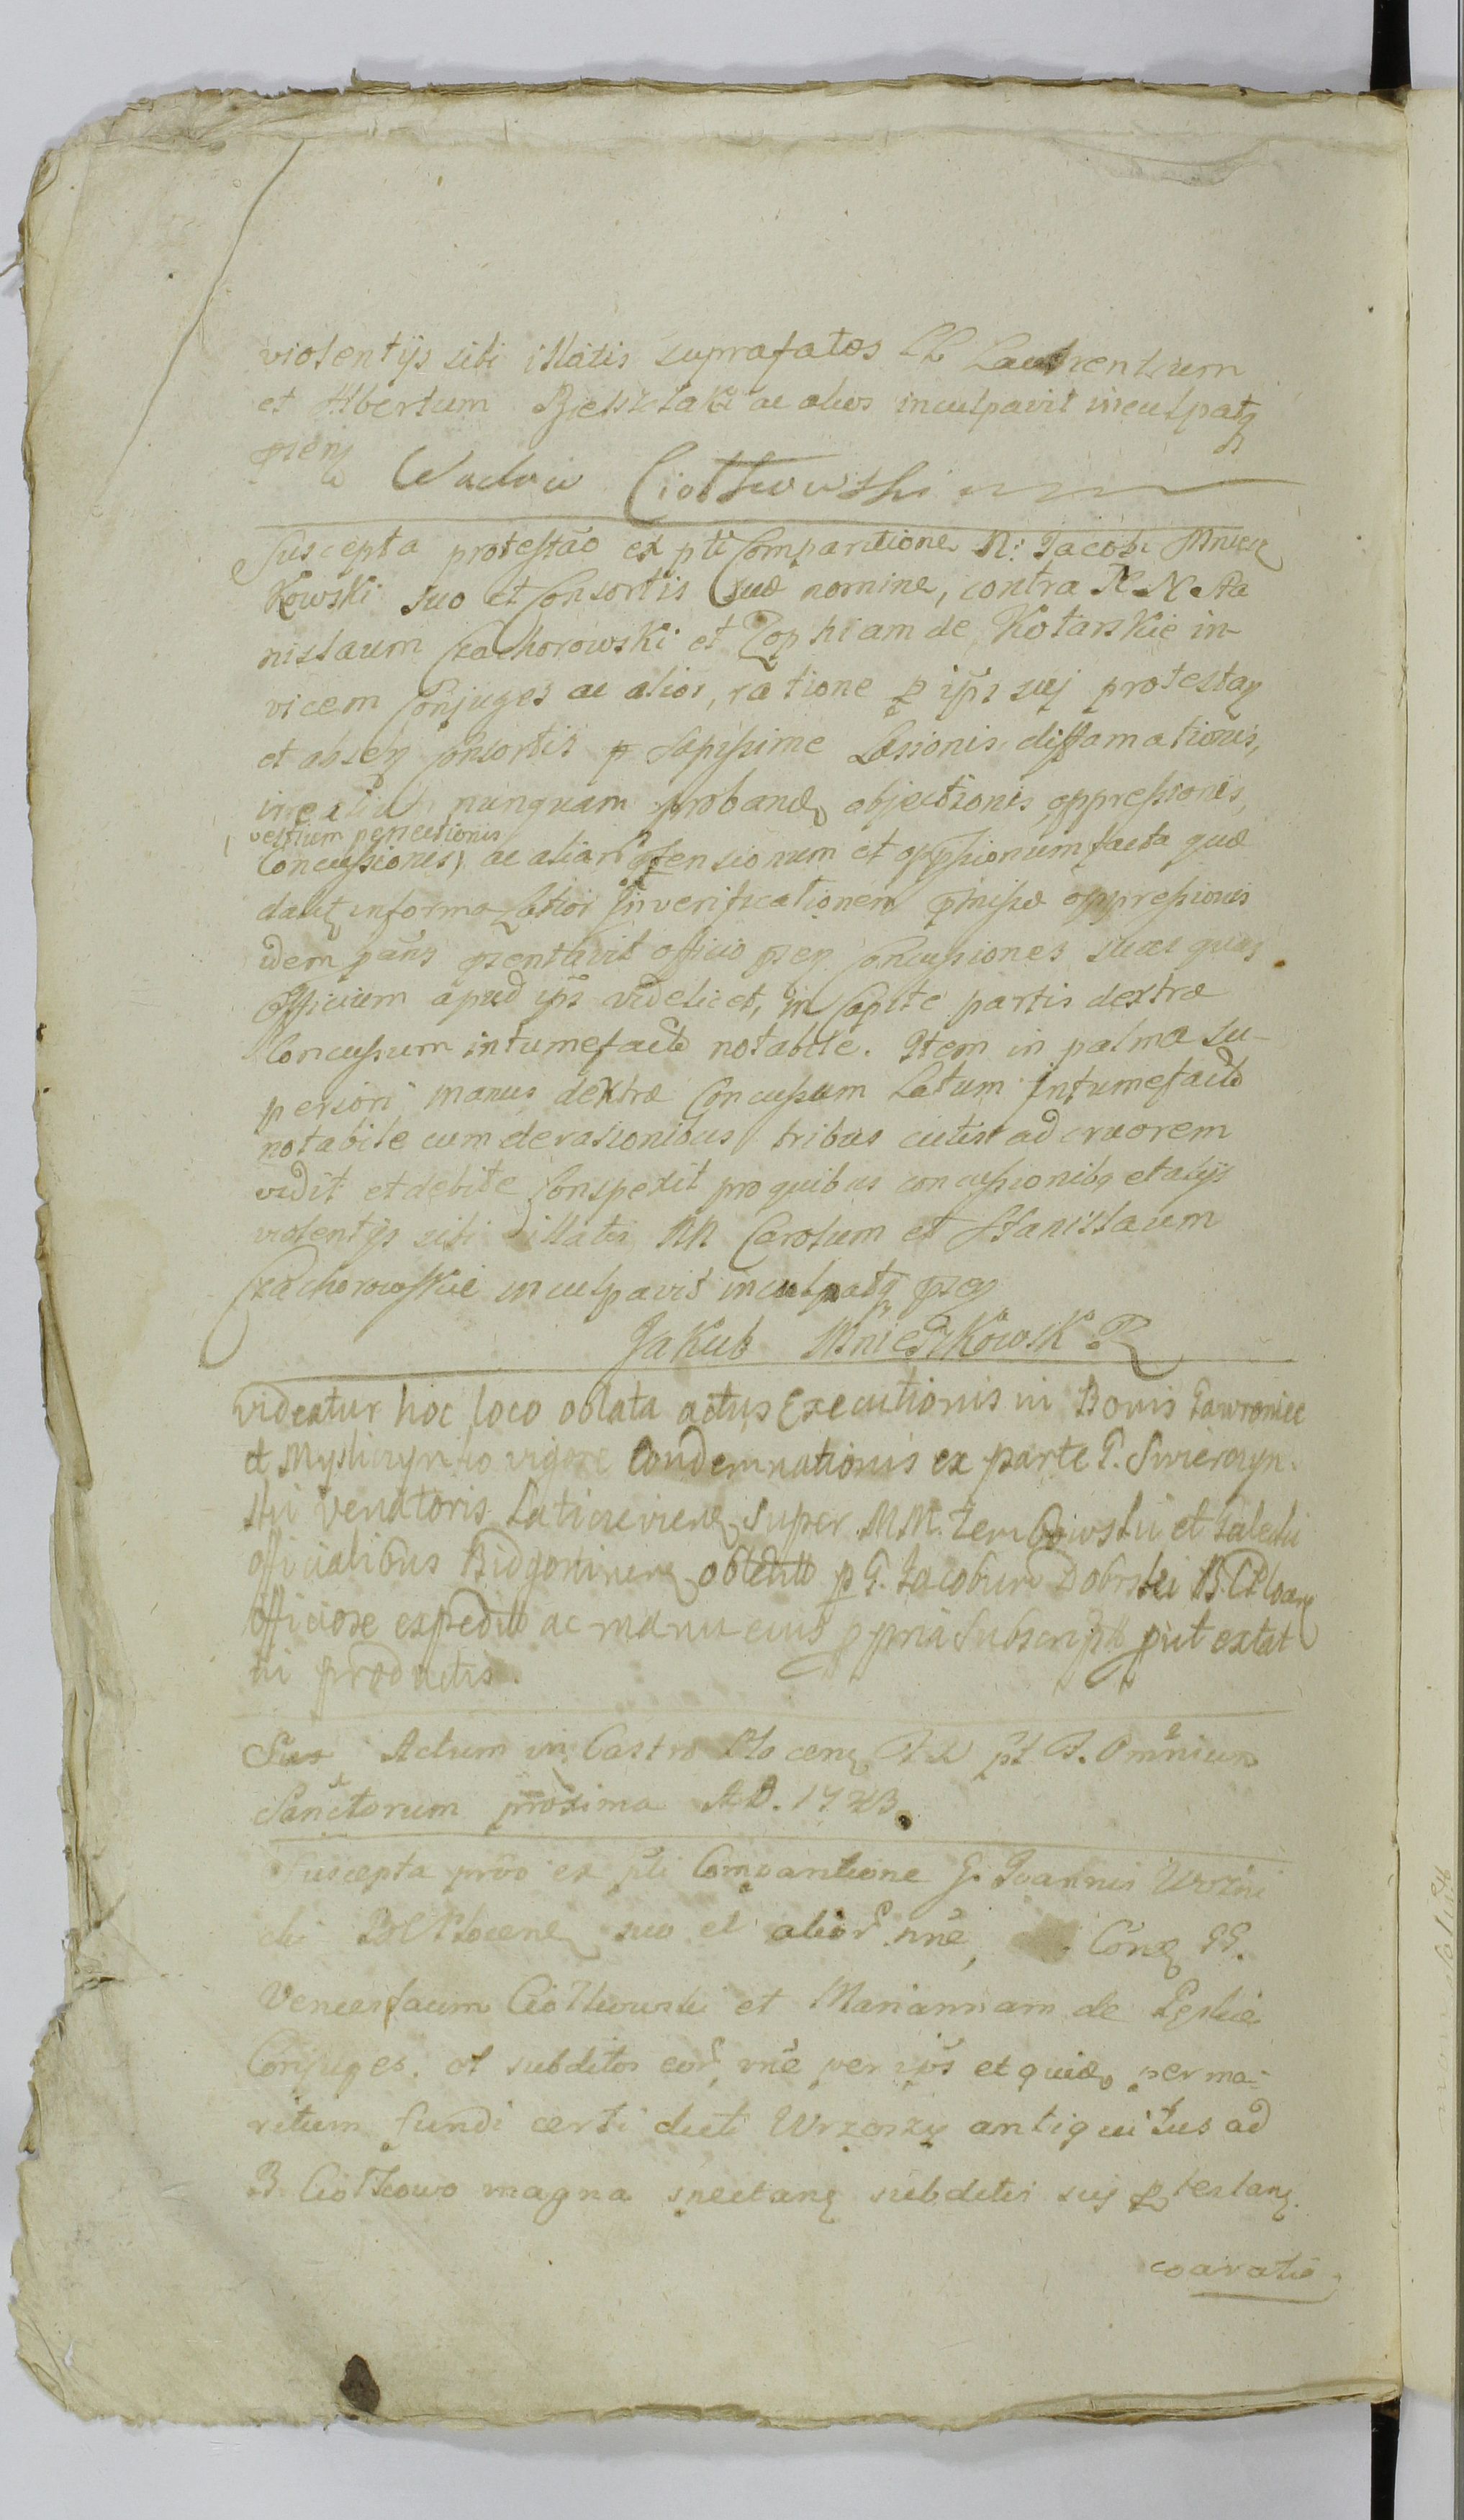 violentijs sibi illatis suprafatos LL Laurentium
et Albertum ac alios inculpavit inculpatq
pñtq
Wacław Ciołkowski
Suscepta protestao ex pti Comparitione N: Jacobi Mniesz
kowski suo et Consortis suæ nomine, contra N N Sta
nislaum Czachorowski et Zophiam de Kotarskie in-
vicem Conjuges ac alios, ratione p ips suj protestaq
et Consortis p Sæpissime Læsionis diffamationis,
nunquam probandæ objectionis oppressionis,
vestium persecutionis
Concussionis, ac aliar offensionum et oppssionum facta quæ
in forma latiori In verificationem pmissæ oppressionis
idem pañs psentavit officio psen Concussiones suas quas
Officium apud ips videlicet, in Capite partis dextræ
Concussum intumefactũ notabile. Item in palma su-
periori manus dextræ Concussum latum intumefactũ
notabile cum derasionibus tribus cutis ad cruorem
vidit et debite Conspexit pro quibus concussionibq et alijs
violentijs sibi illatis NN Carolum et Stanislaum
Czachorowskie inculpavit inculpatq pseq
Jakub Mnieszkowsk
videatur hoc loco oblata actus Executionis in Bonis Gawroniec
et vigore Condemnationis ex parte G. Swierczyn
ski Venatoris super MM. et
officialibus obtentũ p G. Jacobum Dobrski
officiose expeditũ ac manu eius ppria Subscriptũ put extat
in productis.
Actum in Castro Plocenq pt F. Omnium
Sanctorum proxima AD. 1723.
Suscepta prõo ex pti Comparitione G. Joannis
suo et alior nñe, GG.
Venceslaum Ciołkowski et Mariannam de
Conjuges. et subditos eor, per ips et per ma-
ritum fundi certi dicti antiquitus ad
B. Ciołkowo magna spectanq subditis suj ptestanq